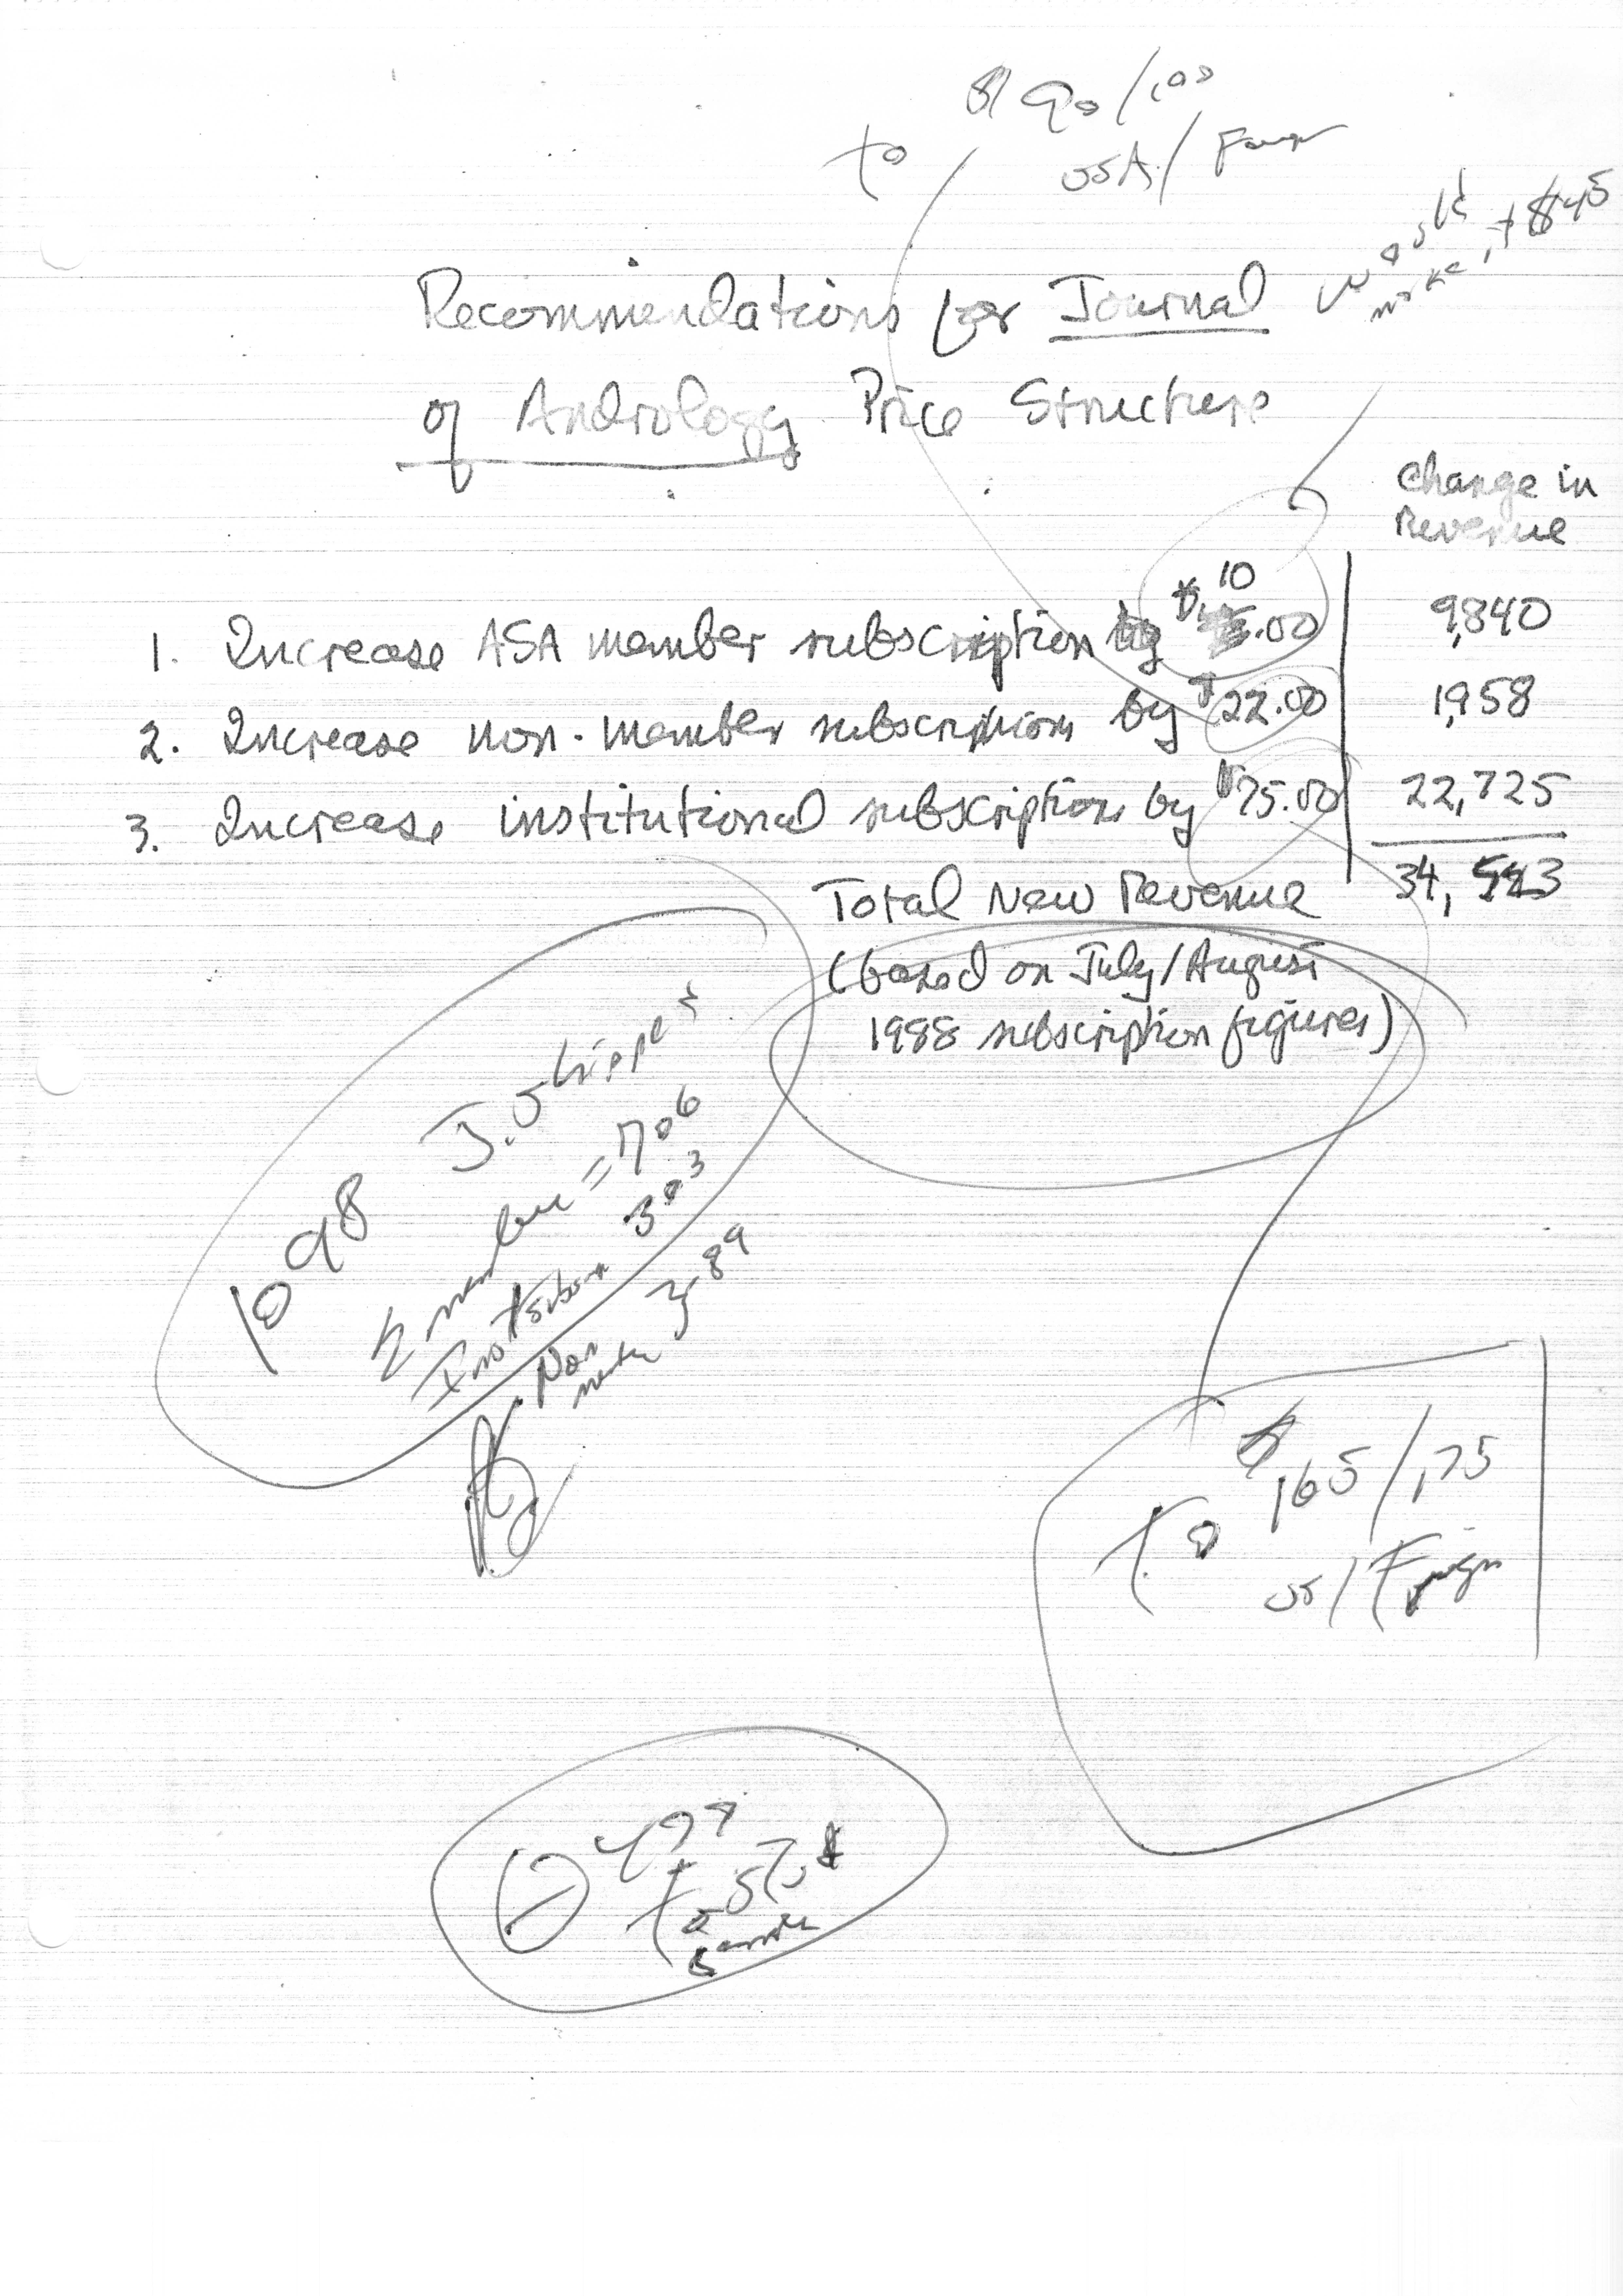 $ 90/100
to USA/Foreign
would
make it $45
Recommendations for Journal
of Andrology Price Structure
Change in
Revenue
1. Increase ASA member subscription by $10.00 9,840
2. Increase non-member subscriptions by $22.00 1,958
3. Increase institutional subscriptions by $75.00 22,725
Total New Revenue 34,523
(based on July/August
1988 subscription figures)
1098 J. Shipped
member = 706
Institution 303
Non member 89
to $165/175
US/Foreign
to